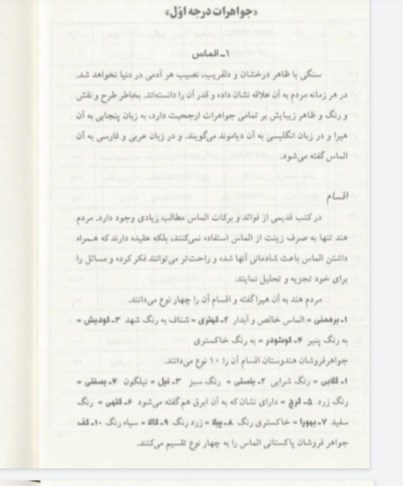 «جواهرات درجه اوّل»
۱ـ الماس
سنگی با ظاهر درخشان و دلفریب، نصیب هر آدمی در دنیا نخواهد شد.
در هر زمانه مردم به آن علاقه نشان داده و قدر آن را دانسته‌اند. بخاطر طرح و نقش
و رنگ و ظاهر زیبایش بر تمامی جواهرات ارجحیت دارد، به زبان پنجابی به آن
هیرا و در زبان انگلیسی به آن دیاموند می‌گویند. و در زبان عربی و فارسی به آن
الماس گفته می‌شود.
اقسام
در کتب قدیمی از فوائد و برکات الماس مطالب زیادی وجود دارد. مردم
هند تنها به صرف زینت از الماس استفاده نمی‌کنند، بلکه عقیده دارند که همراه
داشتن الماس باعث شادمانی آنها شده و راحت‌تر می‌توانند فکر کرده و مسائل را
برای خود تجزیه و تحلیل نمایند.
مردم هند به آن هیرا گفته و اقسام آن را چهار نوع می‌دانند.
۱ـ برهمنی = الماس خالص و آبدار ۲ـ کهتری = شفاف به رنگ شهد ۳ـ کودیش =
به رنگ پنیر ۴ـ کوشودر = به رنگ خاکستری
جواهرفروشان هندوستان اقسام آن را ۱۰ نوع می‌دانند.
۱ـ گلابی = رنگ شرابی ۲ـ بنصفی = رنگ سبز ۳ـ نیل = نیلگون ۴ـ بسنتی =
رنگ زرد ۵ـ کرچ = دارای نشان که به آن ابرق هم گفته می‌شود ۶ـ کتهی = رنگ
سفید ۷ـ بهورا = خاکستری رنگ ۸ـ پیلا = زرد رنگ ۹ـ کالا = سیاه رنگ ۱۰ـ کف
جواهر فروشان پاکستانی الماس را به چهار نوع تقسیم می‌کنند.